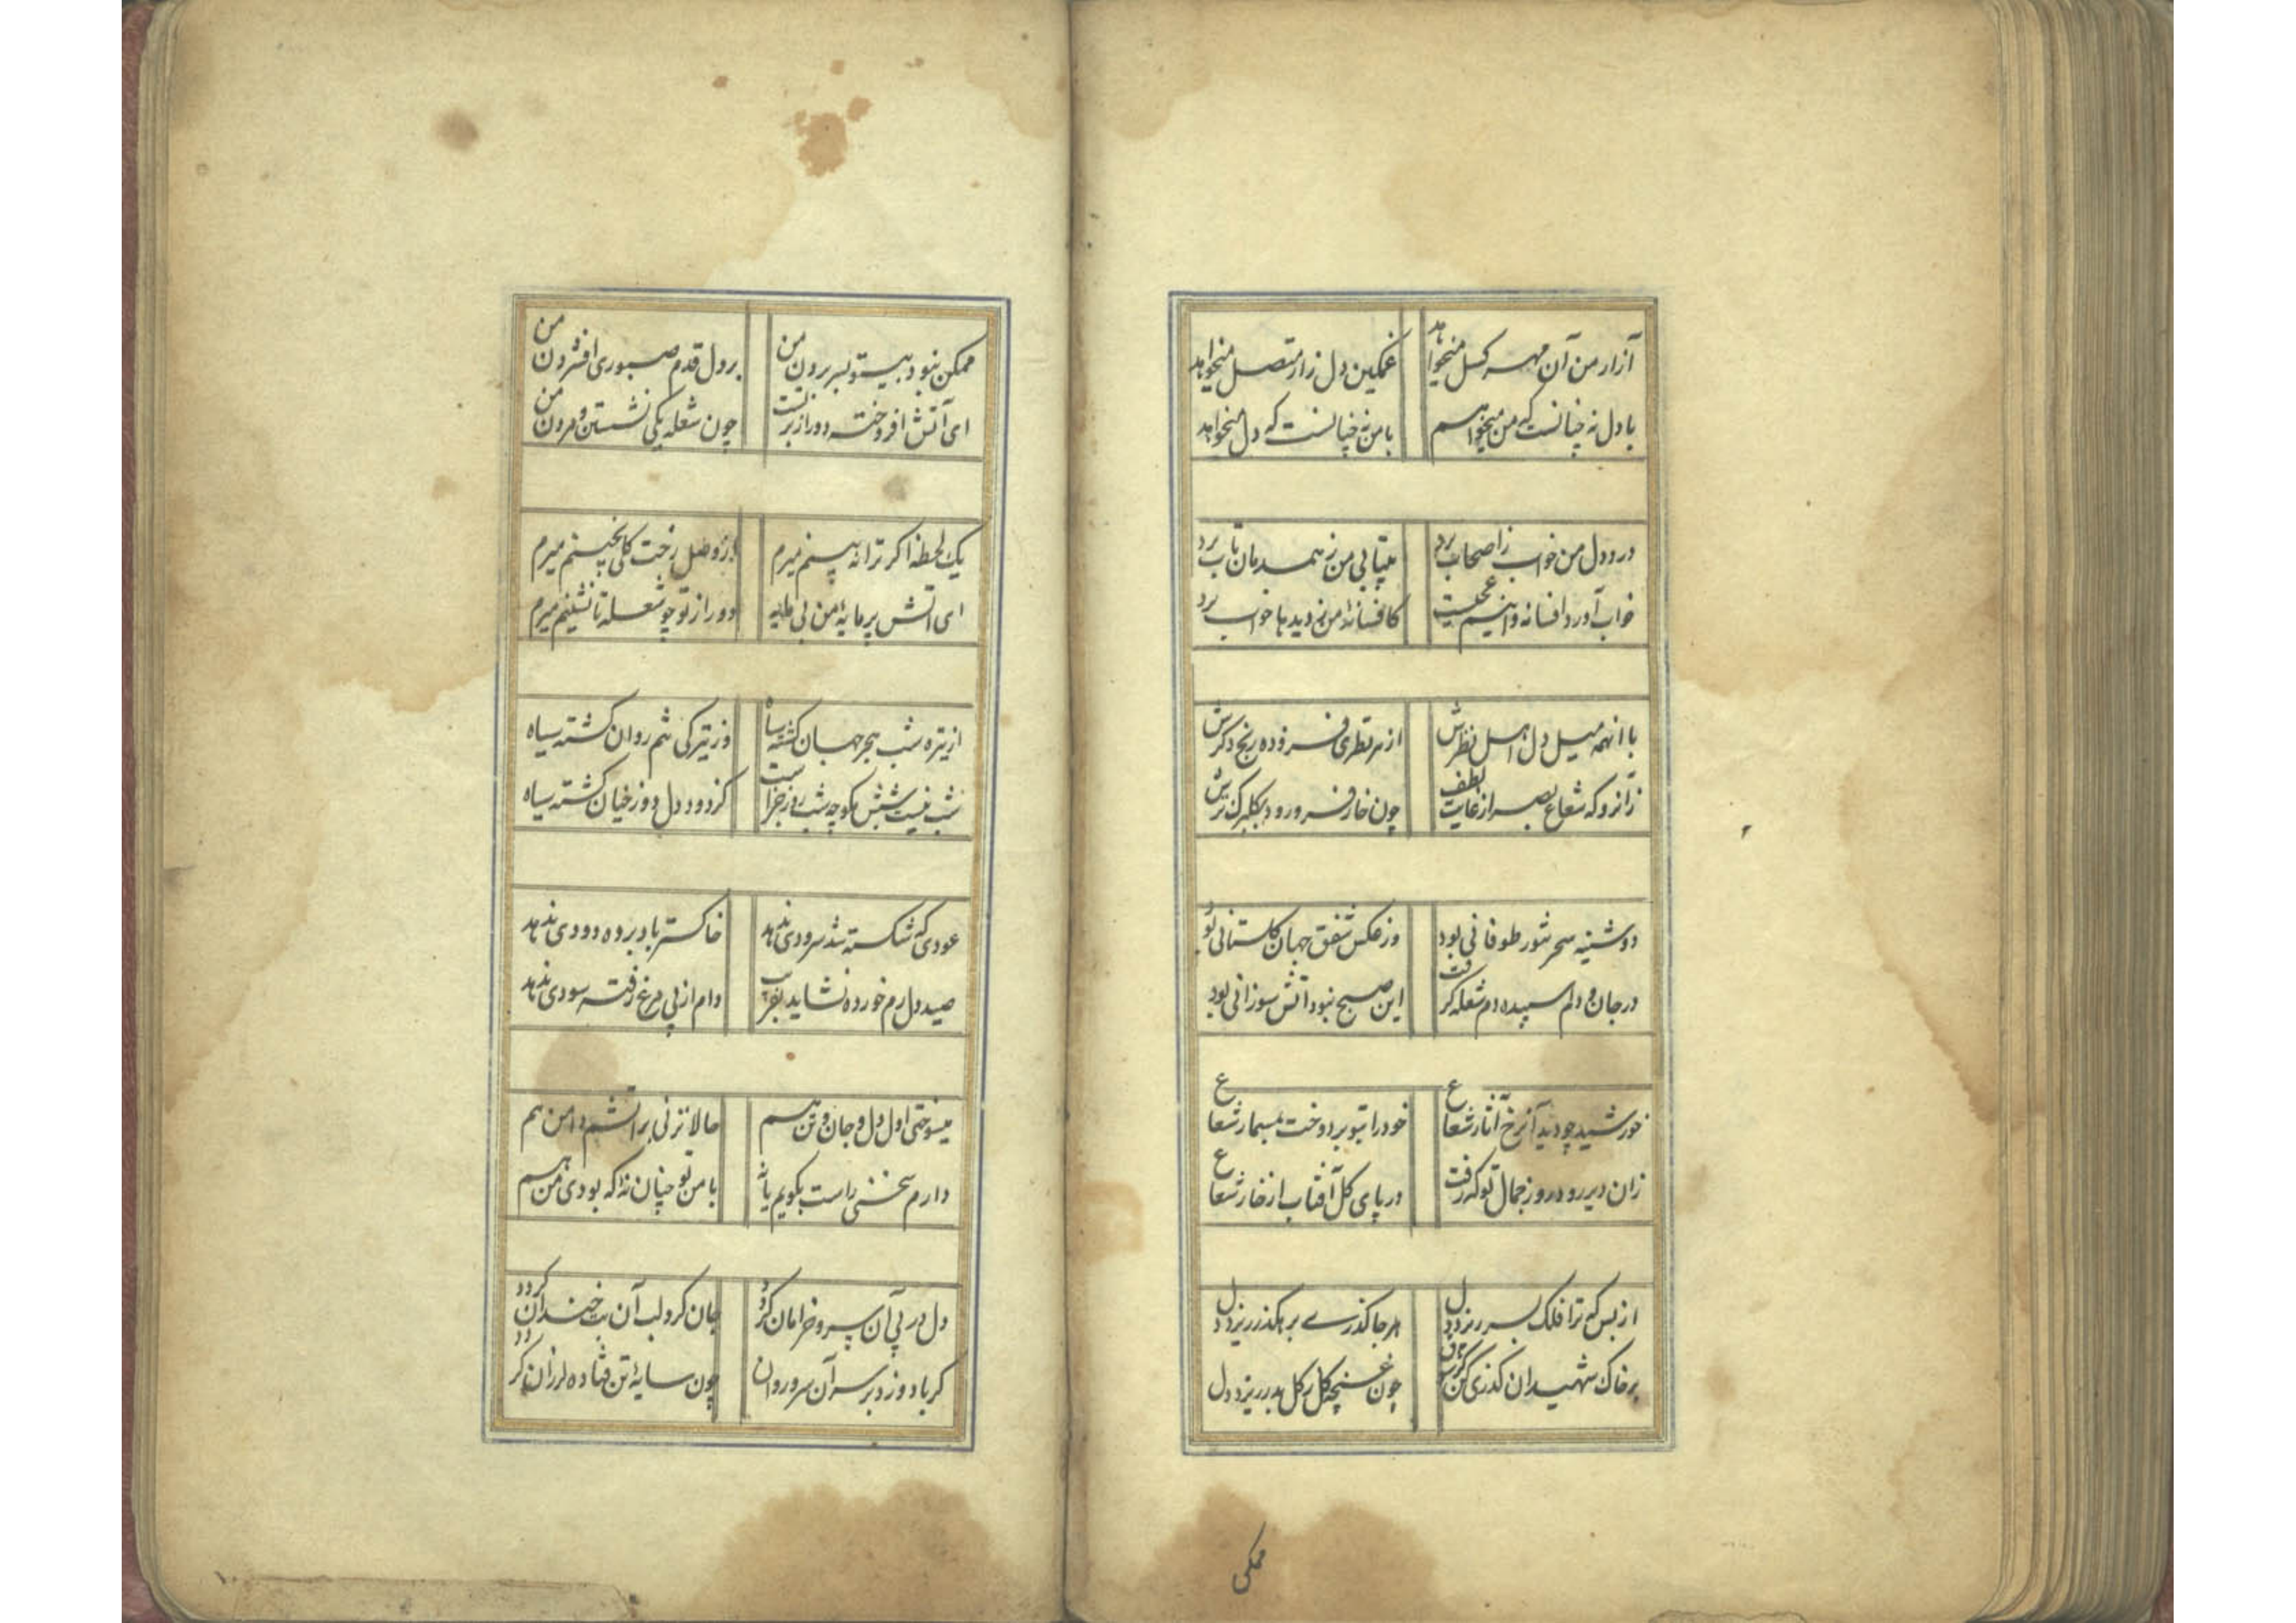 آزار من آن مهر کسل میخواهد
غمکین دل زار متصل میخواهد
با دل نه چنانست که من میخواهم
با من نه چنانست که دل میخواهد
درد دل من خواب ز اصحاب برد
بیتابی من ز همدمان تاب برد
خواب آورد افسانه و اینم عجبست
کافسانهٔ من ز دیدها خواب برد
با انهمه میل دل اهل نظرش
از هر نظری فزوده رنج دکرش
زانرو که شعاع بصر از غایت لطف
چون خار فرو رود بکلبرک ترش
دوشینه سحر شور طوفانی بود
وز عکس شفق جهان کلستانی بود
در جان و دلم سپیده دم شعله گرفت
این صبح نبود آتش سوزانی بود
خورشید چو دید آنرخ آثار شعاع
خود را بتو بر دوخت بمسمار شعاع
زان دیر رود روز جمال تو که رفت
در پای کل آفتاب از خار شعاع
از بس که ترا فلک بسر ریزد دل
هر جا کذری بر هکذر ریزد دل
بر خاک شهیدان کذری کن کز شوق
چون غنچه کل ز کل بدر ریزد دل
ممکن
ممکن نبود بیتو بسر بردن من
بر دل قدم صبوری افشردن من
ای آتش افروخته دور از بر تست
چون شعله یکی نشستن و مردن من
یک لحظه اکر ترا نه بینم میرم
ور وصل رخت کلی نچینم میرم
ای آتش پر مایهٔ من بی
دور از تو چو شعله تا نشینم میرم
از تیره شب هجر جهان کشته سیاه
وز تیرکی شم روان کشته سیاه
شب نیست شبش مکو چه شب روز جزاست
کز دود دل دوزخیان کشته سیاه
عودی که شکسته شد سرودی ندهد
خاکستر باد برده دودی ندهد
صید دل رم خورده نشاید بفریب
دام از پی مرغ رفته سودی ندهد
میسوختی اول دل و جان و تن هم
حالا نزنی بر آتشم دامن هم
دارم سخنی راست بکویم یا نه
با من تو چنان نهٔ که بودی من هم
دل در پی آن سرو خرامان کردد
جان کرد لب آن بت خندان کردد
کر باد وزد بر سر آن سرو روان
چون سایهٔ تن فتاده لرزان کردد